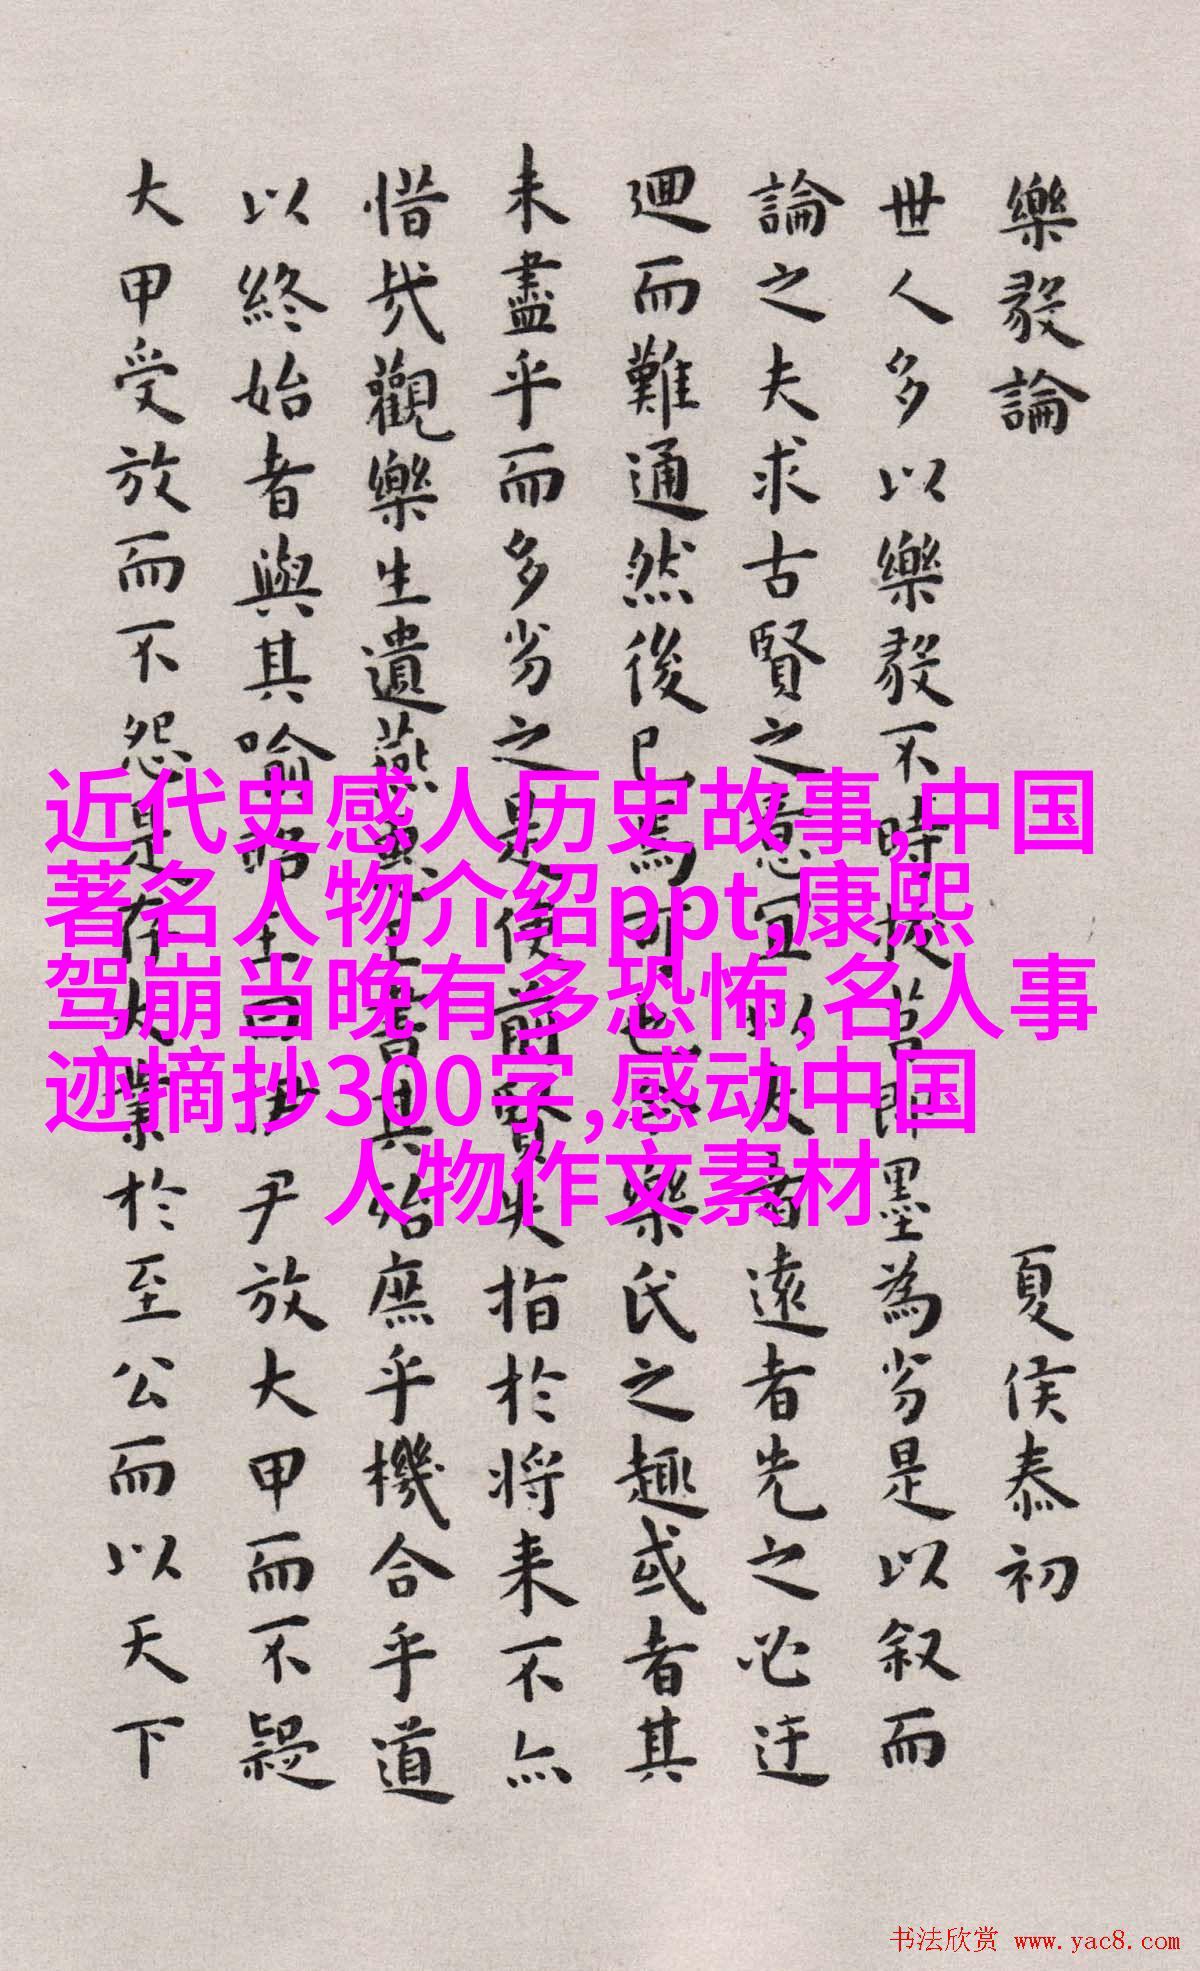 樂毅論
夏侯泰初
世人多以樂毅不時拔莒即墨為劣是以叙而
論之夫求古賢之意宜以大者遠者先之必迂
迴而難通然後已焉可也今樂氏之趣或者其
未盡乎而多劣之是使前賢失指於將来不亦
惜哉觀樂生遺燕惠王書其殆庶乎機合乎道
以終始者與其喻昭王曰伊尹放大甲而不疑
大甲受放而不怨是存大業於至公而以天下
近代史感人历史故事,中国
著名人物介绍ppt,康熙
驾崩当晚有多恐怖,名人事
迹摘抄300字,感动中国
人物作文素材
书法欣赏 www.yac8.com